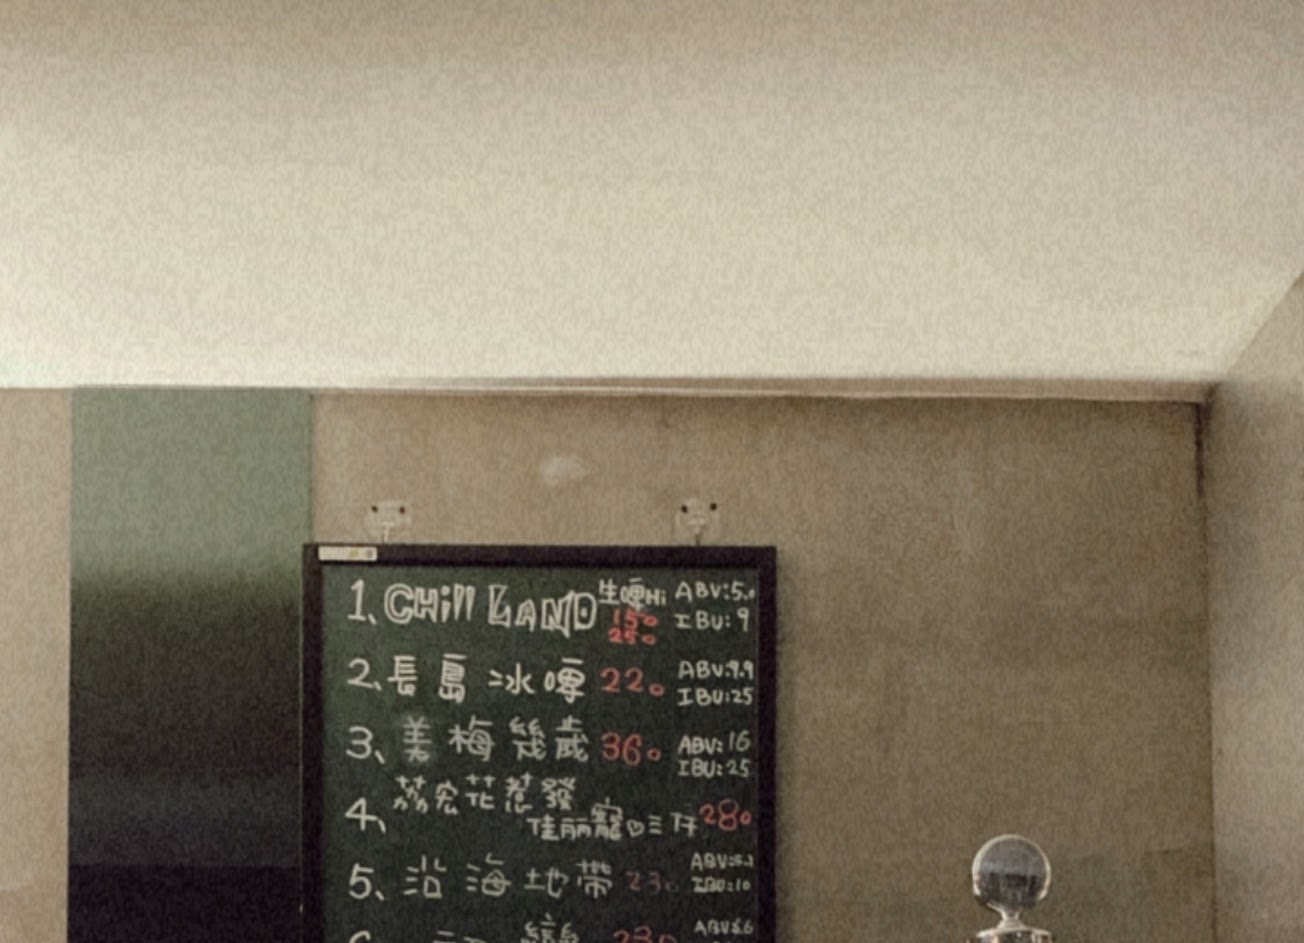 1、CHill LAND 生啤Hi ABV:5.0
150 IBU: 9
250
2、長島冰啤 220 ABV:9.9
IBU:25
3、美梅幾歲 360 ABV: 16
IBU: 25
4、荔宏花惹發
佳丽寵 280
5、沿海地帶 230 ABV:5.1
IBU:10
ABV:6.6
230